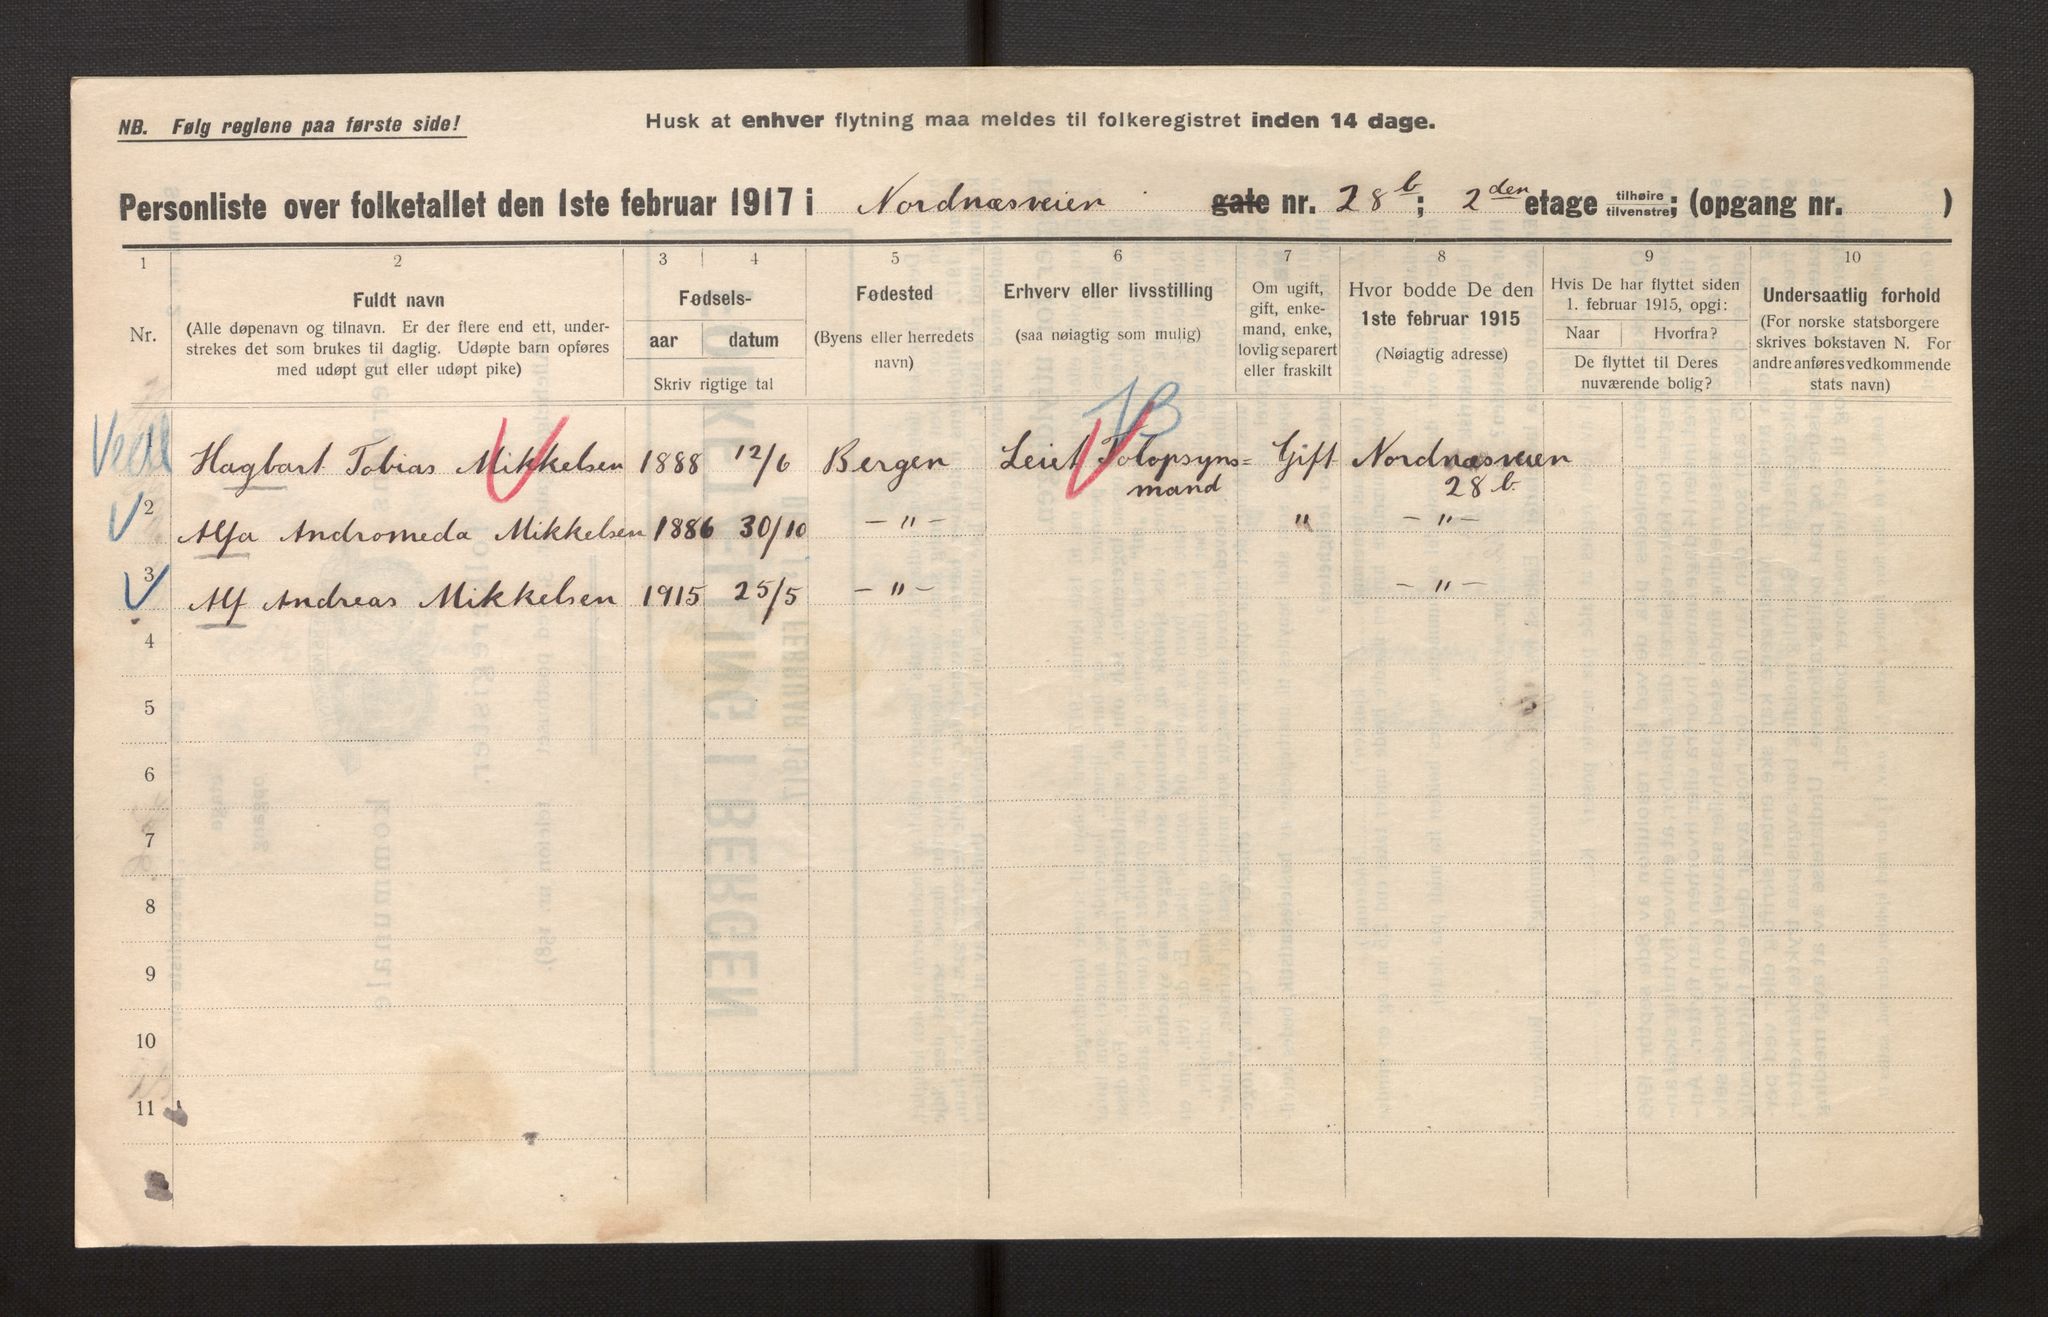 NB. Følg reglene paa første side!
Husk at enhver flytning maa meldes til folkeregistret inden 14 dage.
Personliste over folketallet den 1ste februar 1917 i Nordnæsveien gate nr. 28 b; 2den etage tilhøire/tilvenstre; (opgang nr. )
1 2 3 4 5 6 7 8 9 10
Nr.
Fuldt navn
(Alle døpenavn og tilnavn. Er der flere end ett, under-
strekes det som brukes til daglig. Udøpte barn opføres
med udøpt gut eller udøpt pike)
Fødsels-
aar datum
Skriv rigtige tal
Fødested
(Byens eller herredets
navn)
Erhverv eller livsstilling
(saa nøiagtig som mulig)
Om ugift,
gift, enke-
mand, enke,
lovlig separert
eller fraskilt
Hvor bodde De den
1ste februar 1915
(Nøiagtig adresse)
Hvis De har flyttet siden
1. februar 1915, opgi:
Naar Hvorfra?
De flyttet til Deres
nuværende bolig?
Undersaatlig forhold
(For norske statsborgere
skrives bokstaven N. For
andre anføres vedkommende
stats navn)
1 Hagbart Tobias Mikkelsen 1888 12/6 Bergen Gift Nordnæsveien
mand 28 b.
2 Alfa Andromeda Mikkelsen 1886 30/10 – " – " – " –
3 Alf Andreas Mikkelsen 1915 25/5 – " – – " –
4
5
6
7
8
9
10
11